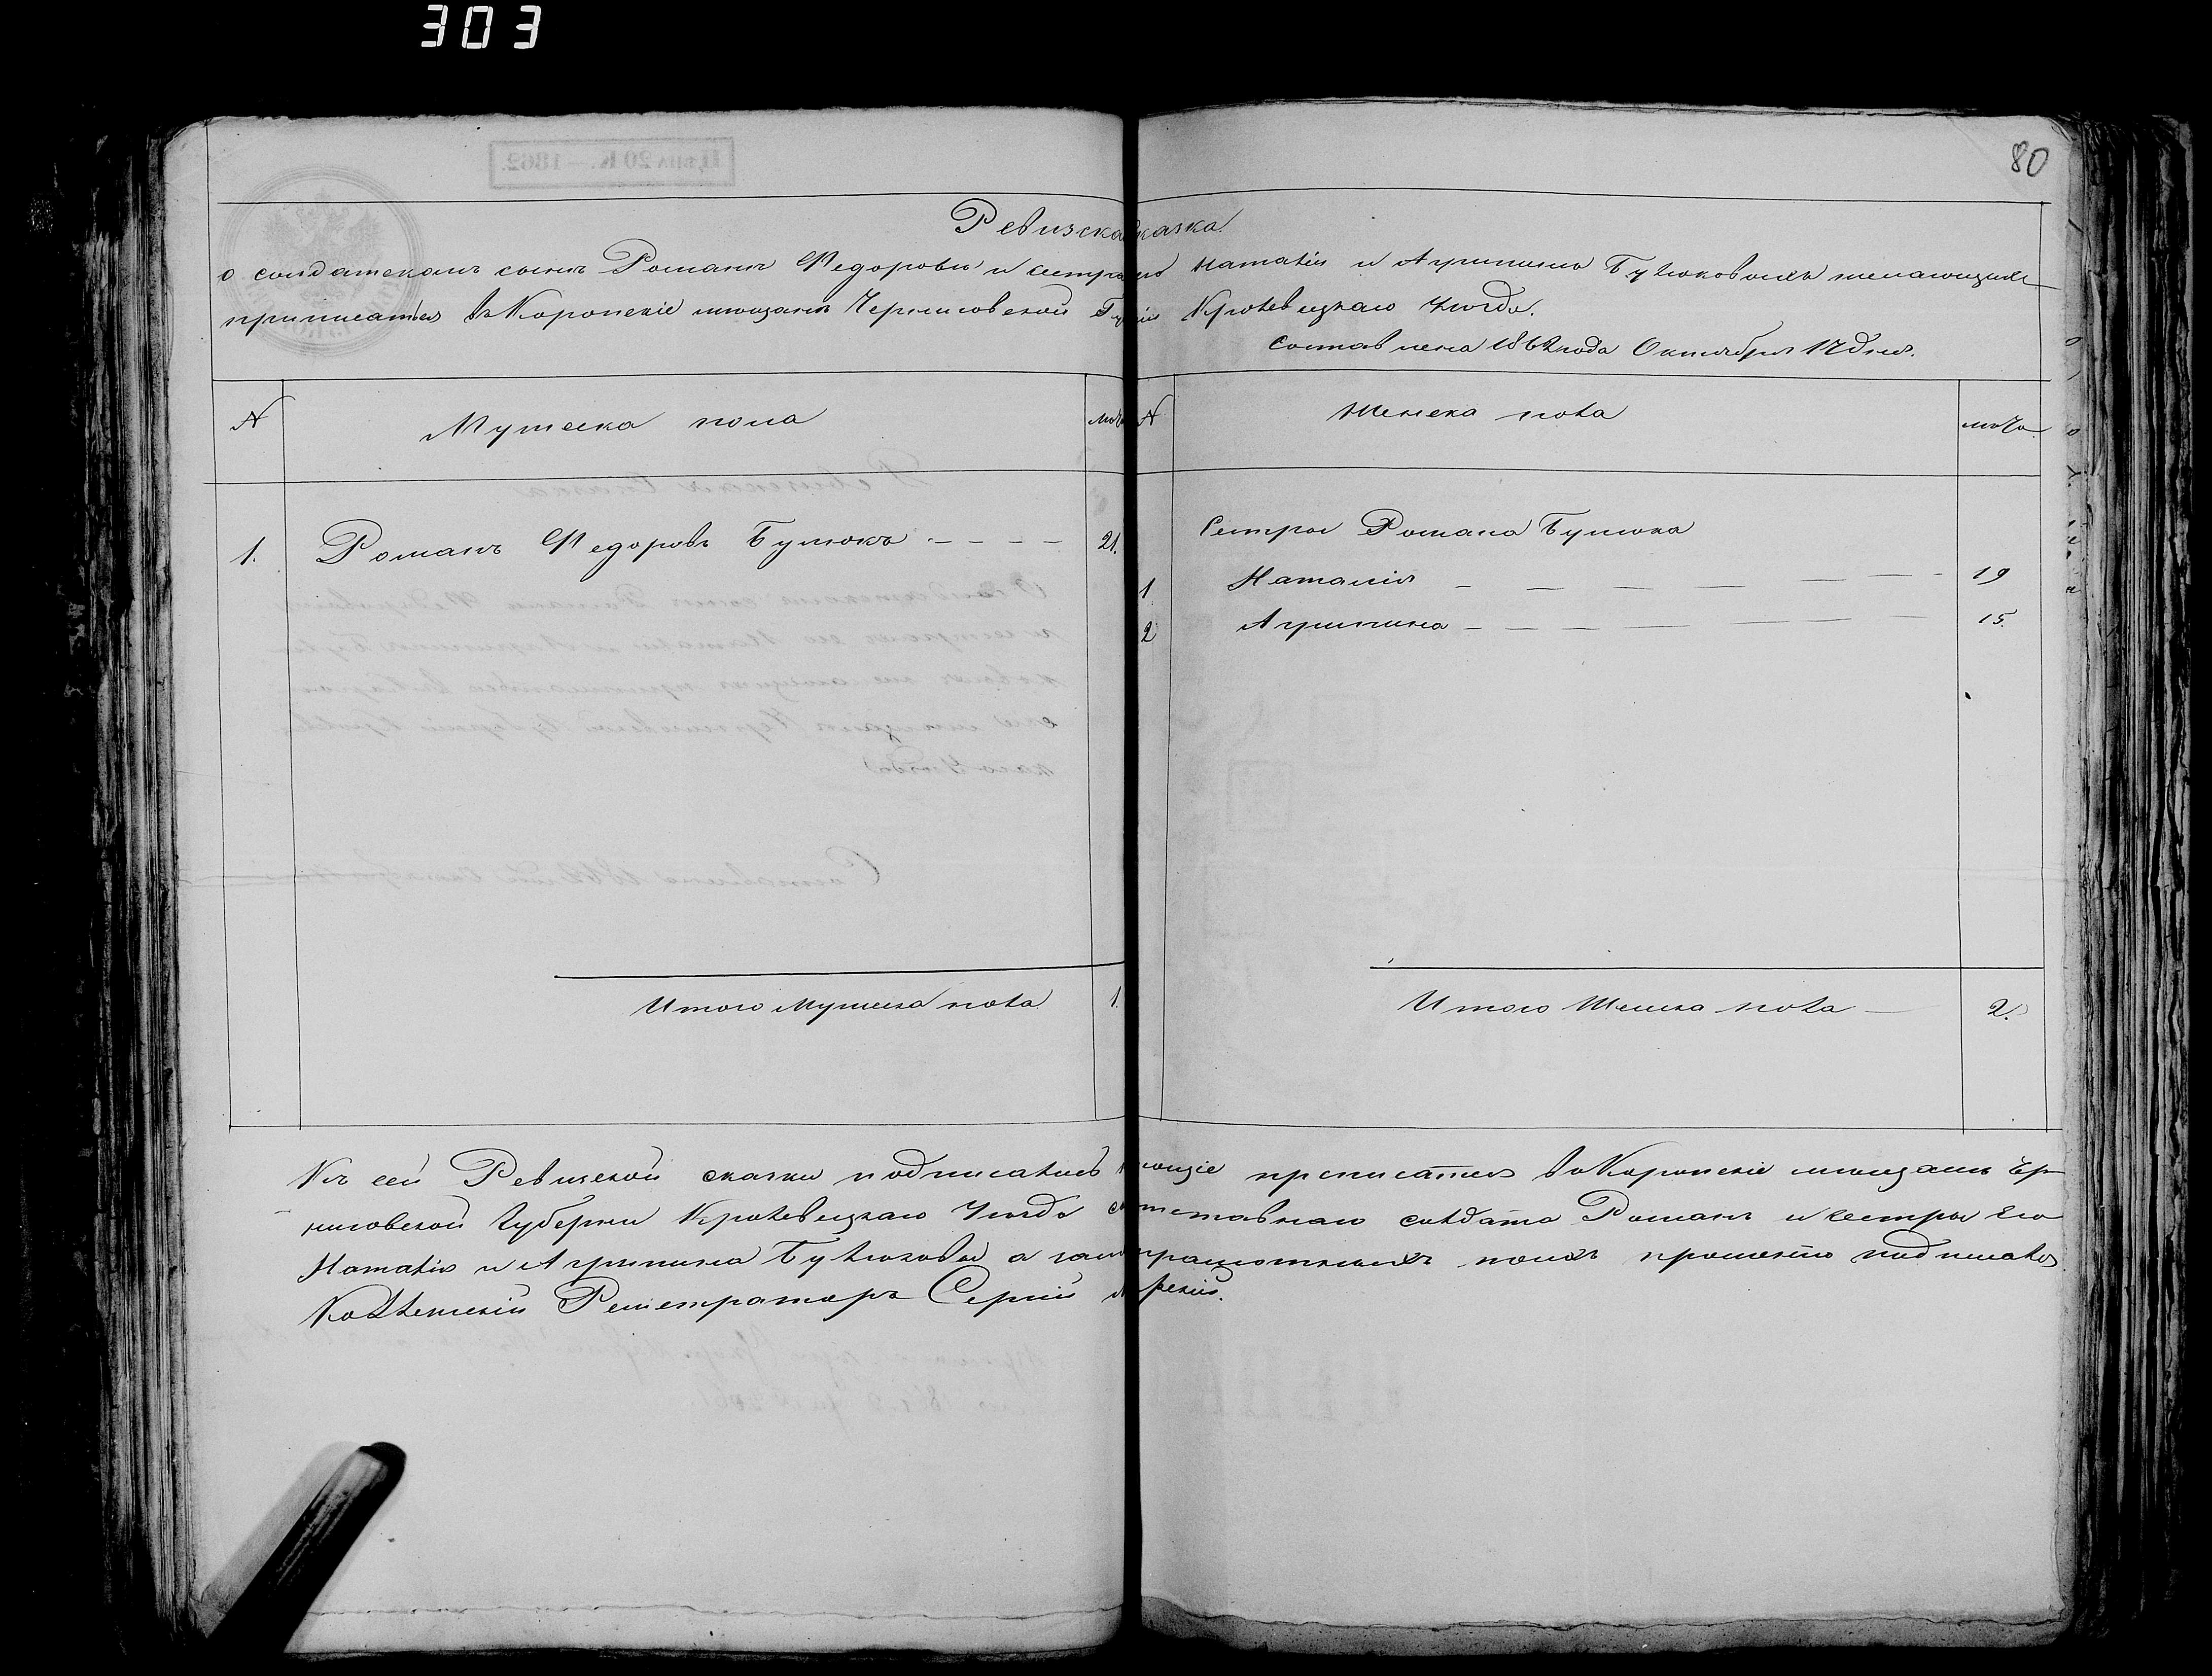 303
80
Цѣна 20 к. — 1862.
Ревизска сказка
о солдатскомъ сынѣ Романѣ Федоровѣ и сестрахъ Наталіи и Агрипины Булюковыхъ желающихъ
приписатся въ Коропскіе мещанѣ Черниговской Губерніи Кролевецкаго Уѣзда.
Составлена 1862 года Октября 17 дня.
№ Мужеска пола лѣта № Женска пола лѣта
1. Романъ Федоровъ Булюкъ 21.
Сестры Романа Булюка
1 Наталія 19
2 Агрипина 15.
Итого Мужеска пола 1. Итого Женска пола 2.
Къ сей Ревизской сказки подписались приписатся въ Коропскіе мещанѣ Чер
ниговской Губерни Кролевецкаго Уѣзда отставнаго солдата Романъ и сестры его
Наталія и Агрипина Булюковы а подписалъ
Коллежскій Регистраторъ Сергій